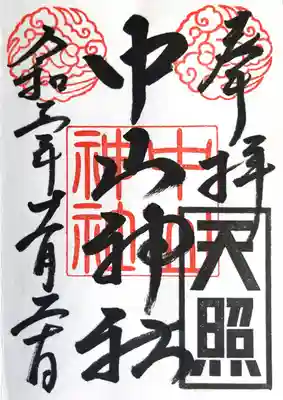 奉拝
天照
中山神社
中山
神社
令和三年十一月二十日